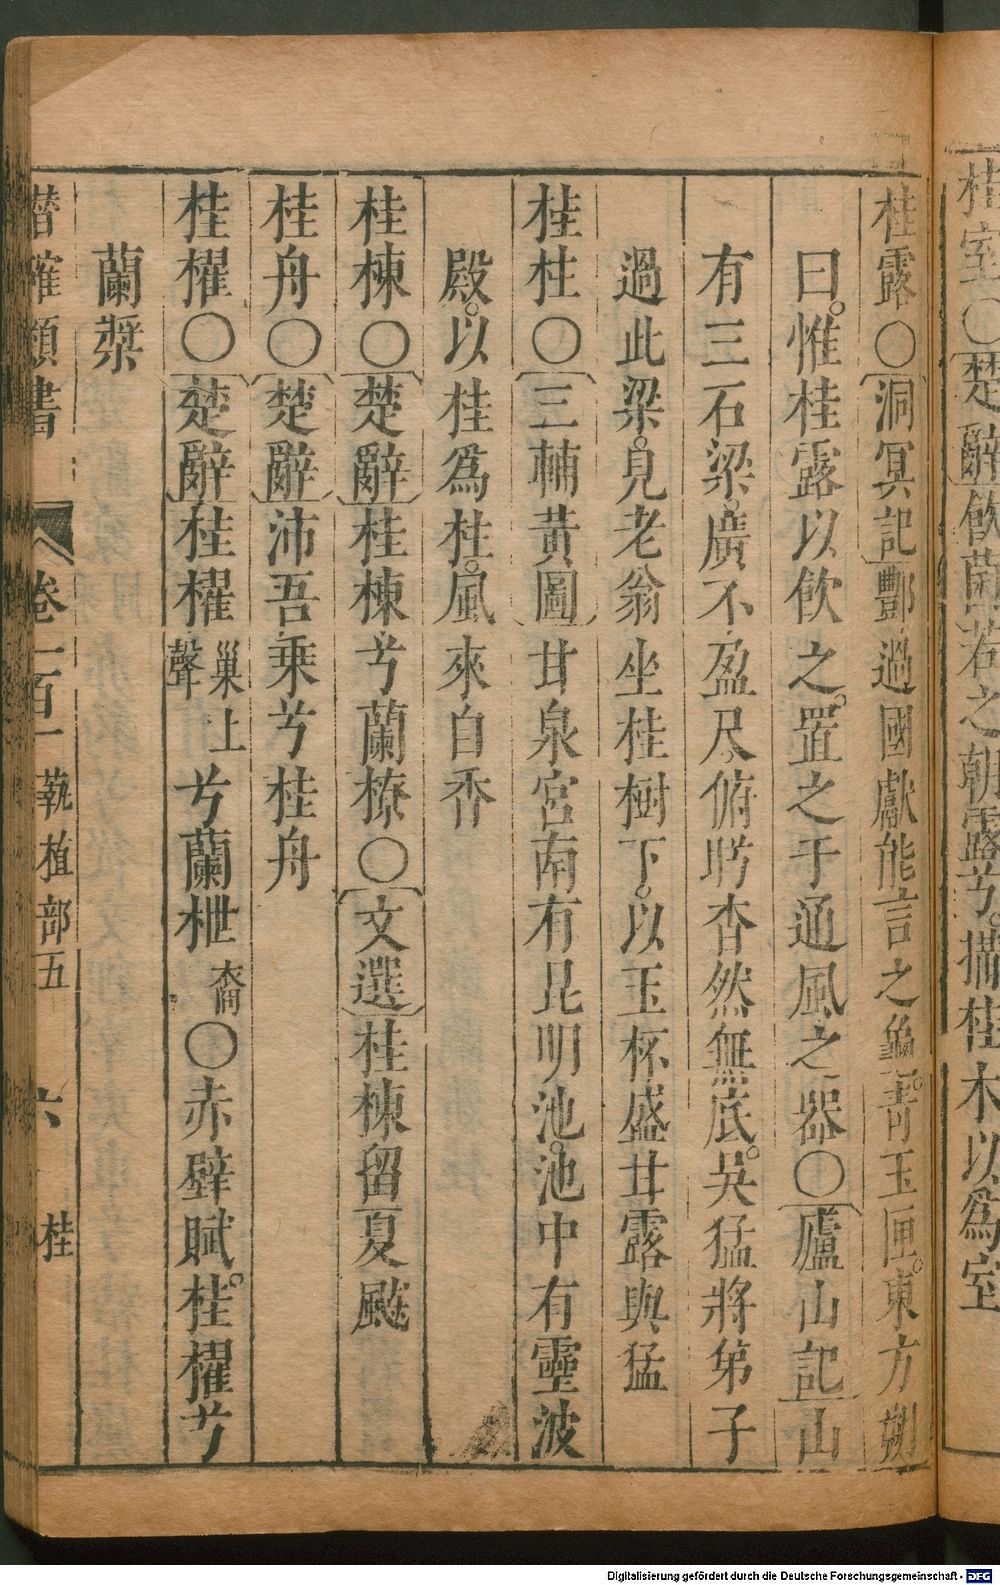 桂室〇楚辭飲菌若之朝露兮搆桂木以爲室
桂露〇洞冥記酆過國獻能言之龜青玉匣東方朔
曰惟桂露以飲之置之于通風之器〇廬山記山
有三石梁廣不盈尺俯眄杳然無底吳猛將弟子
過此梁見老翁坐桂樹下以玉杯盛甘露與猛
桂柱〇三輔黃圖甘泉宮南有昆明池池中有靈波
殿以桂爲柱風來自香
桂棟〇楚辭桂棟兮蘭橑〇文選桂棟留夏飈
桂舟〇楚辭沛吾乘兮桂舟
桂櫂〇楚辭桂櫂巢上聲兮蘭枻裔〇赤壁賦桂櫂兮
蘭槳
潛確類書 卷一百一 蓺植部五 六 桂
Digitalisierung gefördert durch die Deutsche Forschungsgemeinschaft - DFG